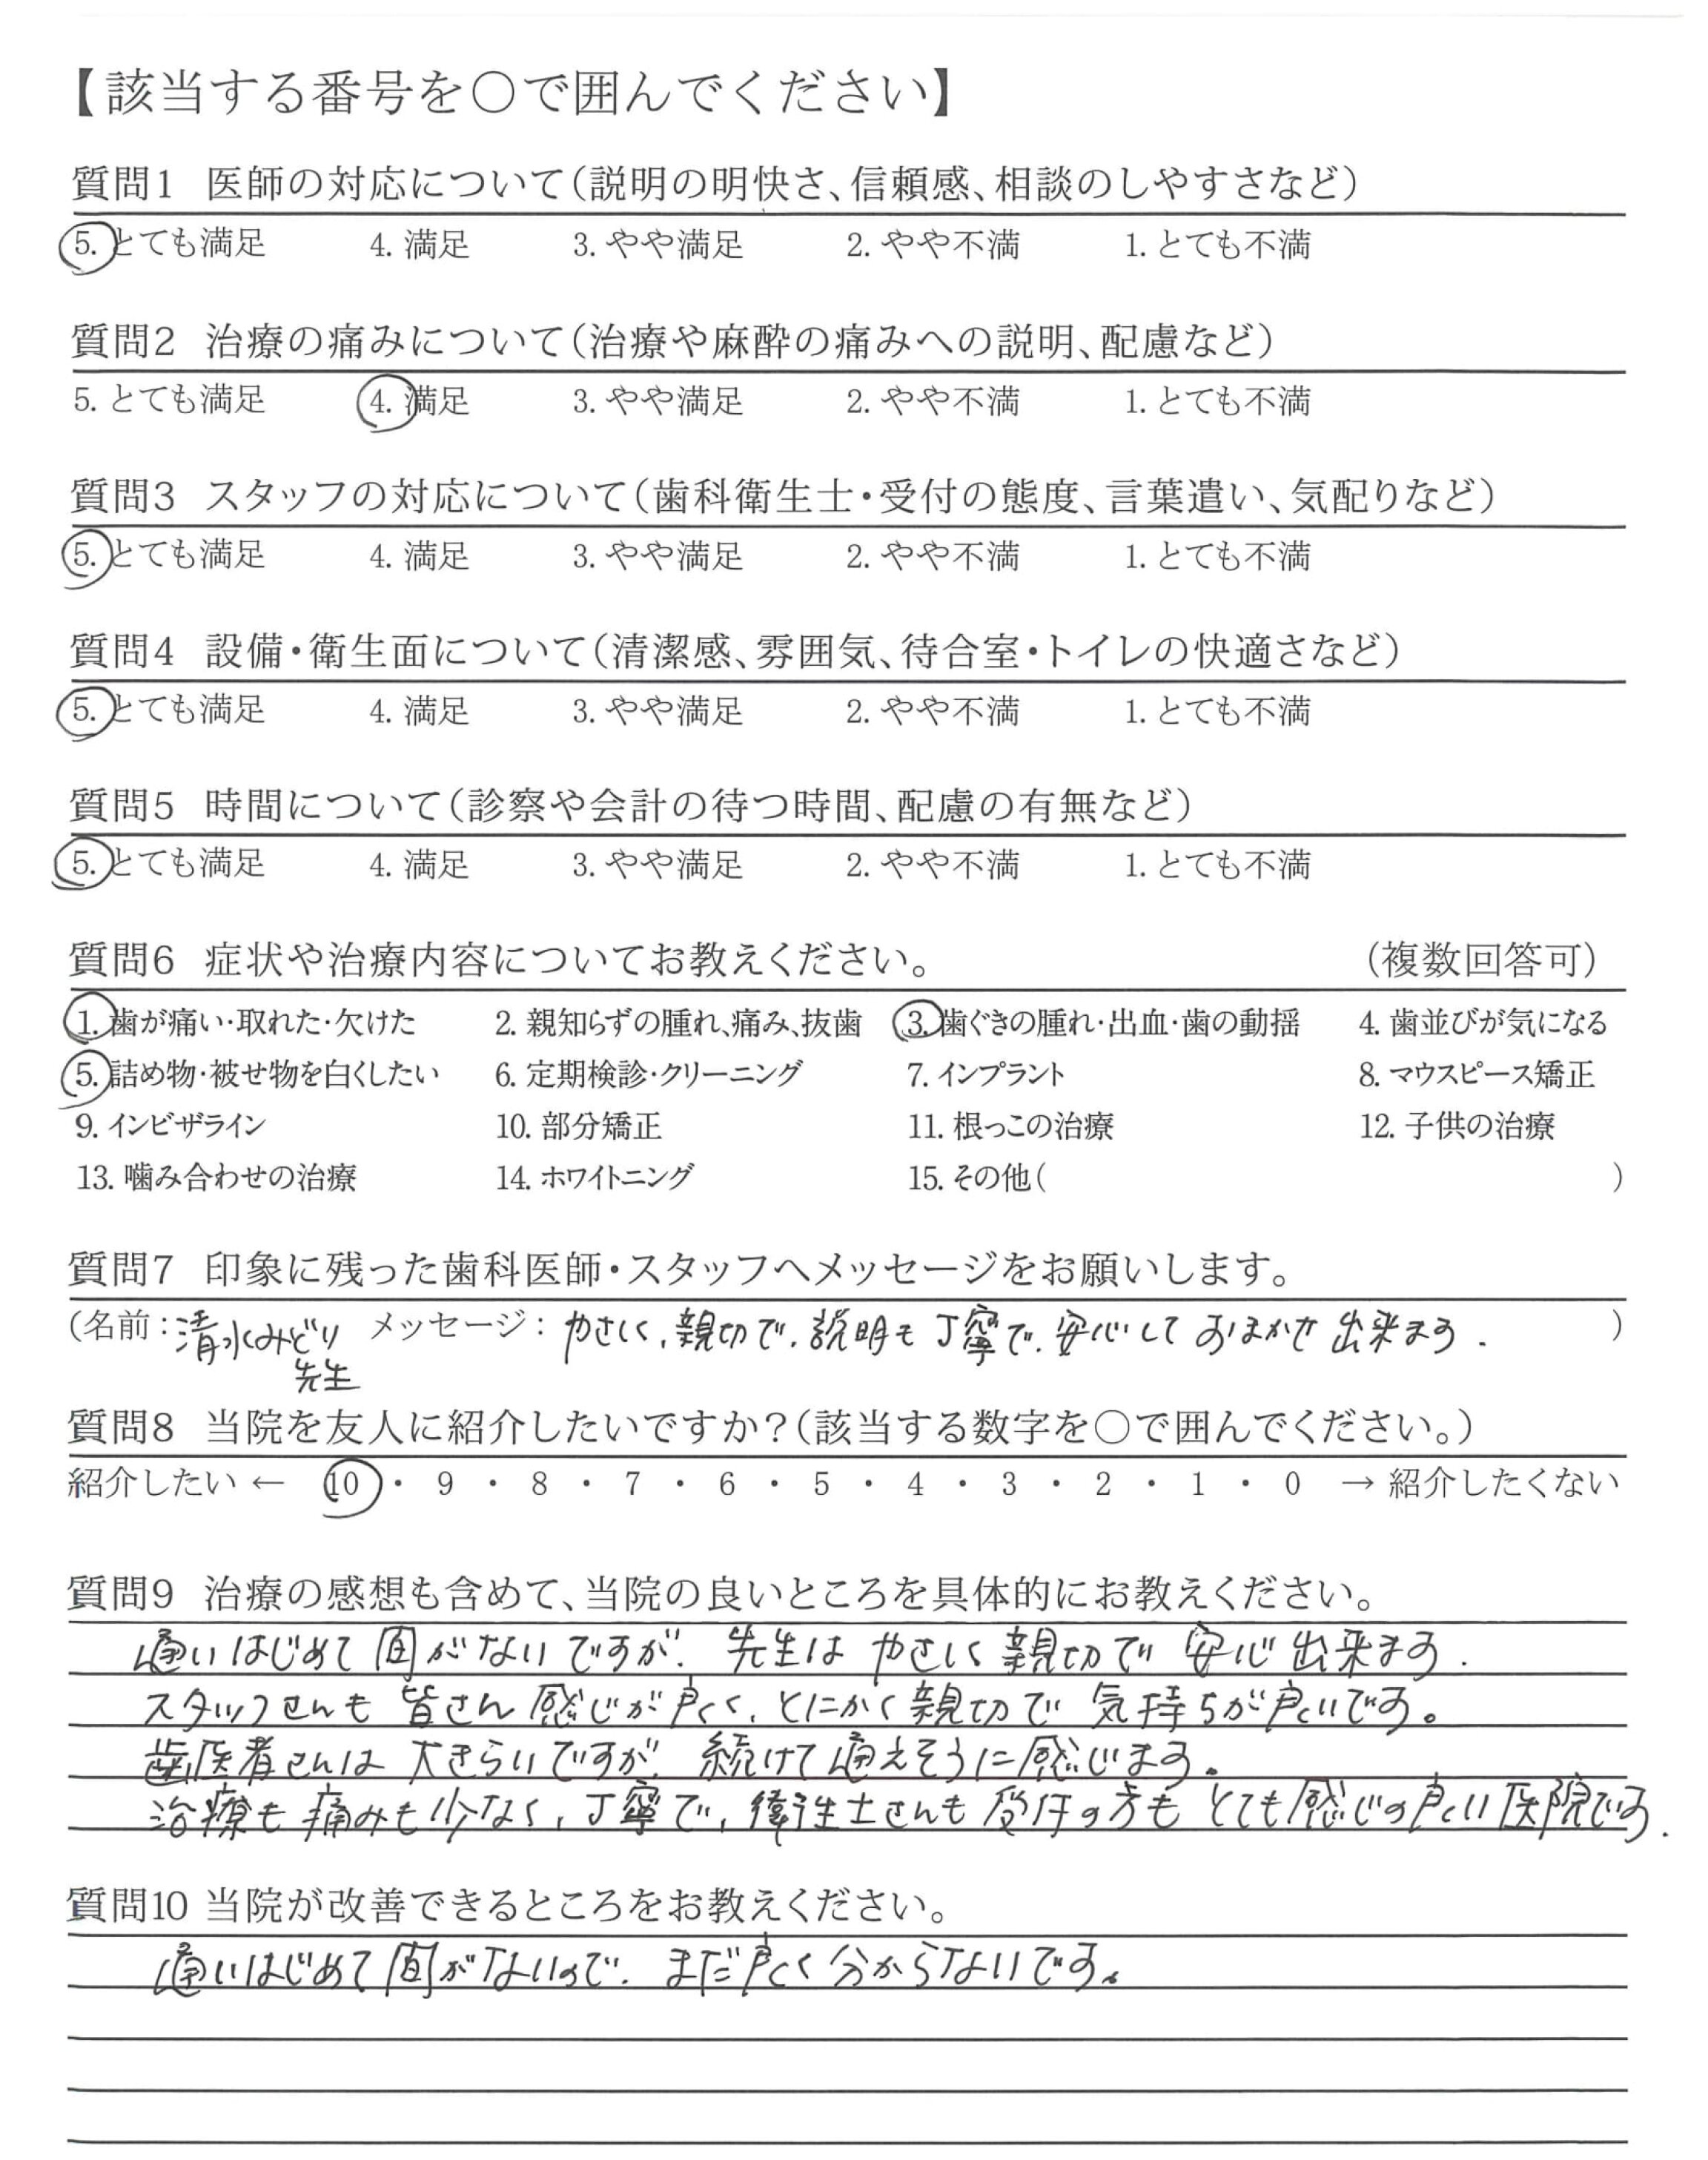 【該当する番号を○で囲んでください】
質問1 医師の対応について（説明の明快さ、信頼感、相談のしやすさなど）
5. とても満足 4. 満足 3. やや満足 2. やや不満 1. とても不満
質問2 治療の痛みについて（治療や麻酔の痛みへの説明、配慮など）
5. とても満足 4. 満足 3. やや満足 2. やや不満 1. とても不満
質問3 スタッフの対応について（歯科衛生士・受付の態度、言葉遣い、気配りなど）
5. とても満足 4. 満足 3. やや満足 2. やや不満 1. とても不満
質問4 設備・衛生面について（清潔感、雰囲気、待合室・トイレの快適さなど）
5. とても満足 4. 満足 3. やや満足 2. やや不満 1. とても不満
質問5 時間について（診察や会計の待つ時間、配慮の有無など）
5. とても満足 4. 満足 3. やや満足 2. やや不満 1. とても不満
質問6 症状や治療内容についてお教えください。 （複数回答可）
1. 歯が痛い・取れた・欠けた 2. 親知らずの腫れ、痛み、抜歯 3. 歯ぐきの腫れ・出血・歯の動揺 4. 歯並びが気になる
5. 詰め物・被せ物を白くしたい 6. 定期検診・クリーニング 7. インプラント 8. マウスピース矯正
9. インビザライン 10. 部分矯正 11. 根っこの治療 12. 子供の治療
13. 噛み合わせの治療 14. ホワイトニング 15. その他（ ）
質問7 印象に残った歯科医師・スタッフへメッセージをお願いします。
（名前：清水みどり メッセージ：やさしく、親切で、説明も丁寧で、安心しておまかせ出来ます. ）
先生
質問8 当院を友人に紹介したいですか？（該当する数字を○で囲んでください。）
紹介したい ← 10 ・ 9 ・ 8 ・ 7 ・ 6 ・ 5 ・ 4 ・ 3 ・ 2 ・ 1 ・ 0 → 紹介したくない
質問9 治療の感想も含めて、当院の良いところを具体的にお教えください。
通いはじめて間がないですが、先生はやさしく親切で安心出来ます.
スタッフさんも皆さん感じが良く、とにかく親切で気持ちが良いです。
歯医者さんは大きらいですが、続けて通えそうに感じます。
治療も痛みも少なく、丁寧で、衛生士さんも受付の方もとても感じの良い医院です.
質問10 当院が改善できるところをお教えください。
通いはじめて間がないので、まだ良く分からないです。